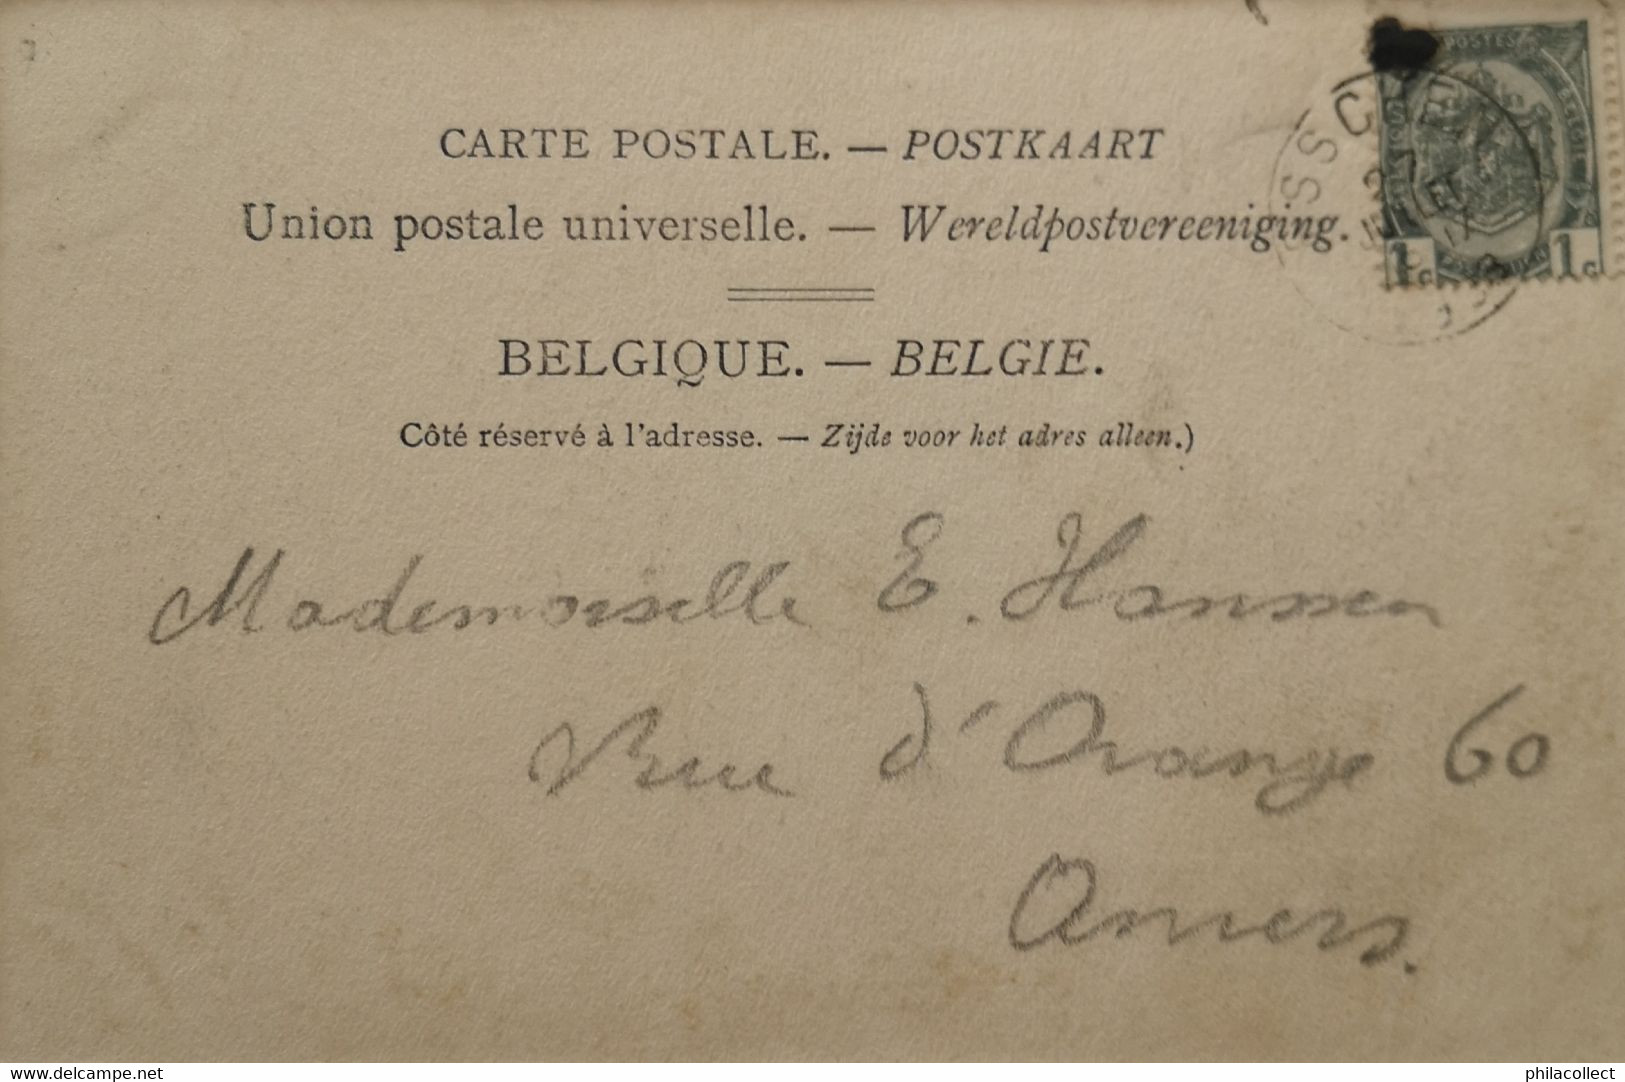 CARTE POSTALE. — POSTKAART
Union postale universelle. — Wereldpostvereeniging.
BELGIQUE. — BELGIE.
Côté réservé à l'adresse. — Zijde voor het adres alleen.)
POSTES
BELGIE
1 C 1 C
ESSCHEN
Mademoiselle E. Hanssen
Rue d'Orange 60
Anvers.
delcampe.net
philacollect